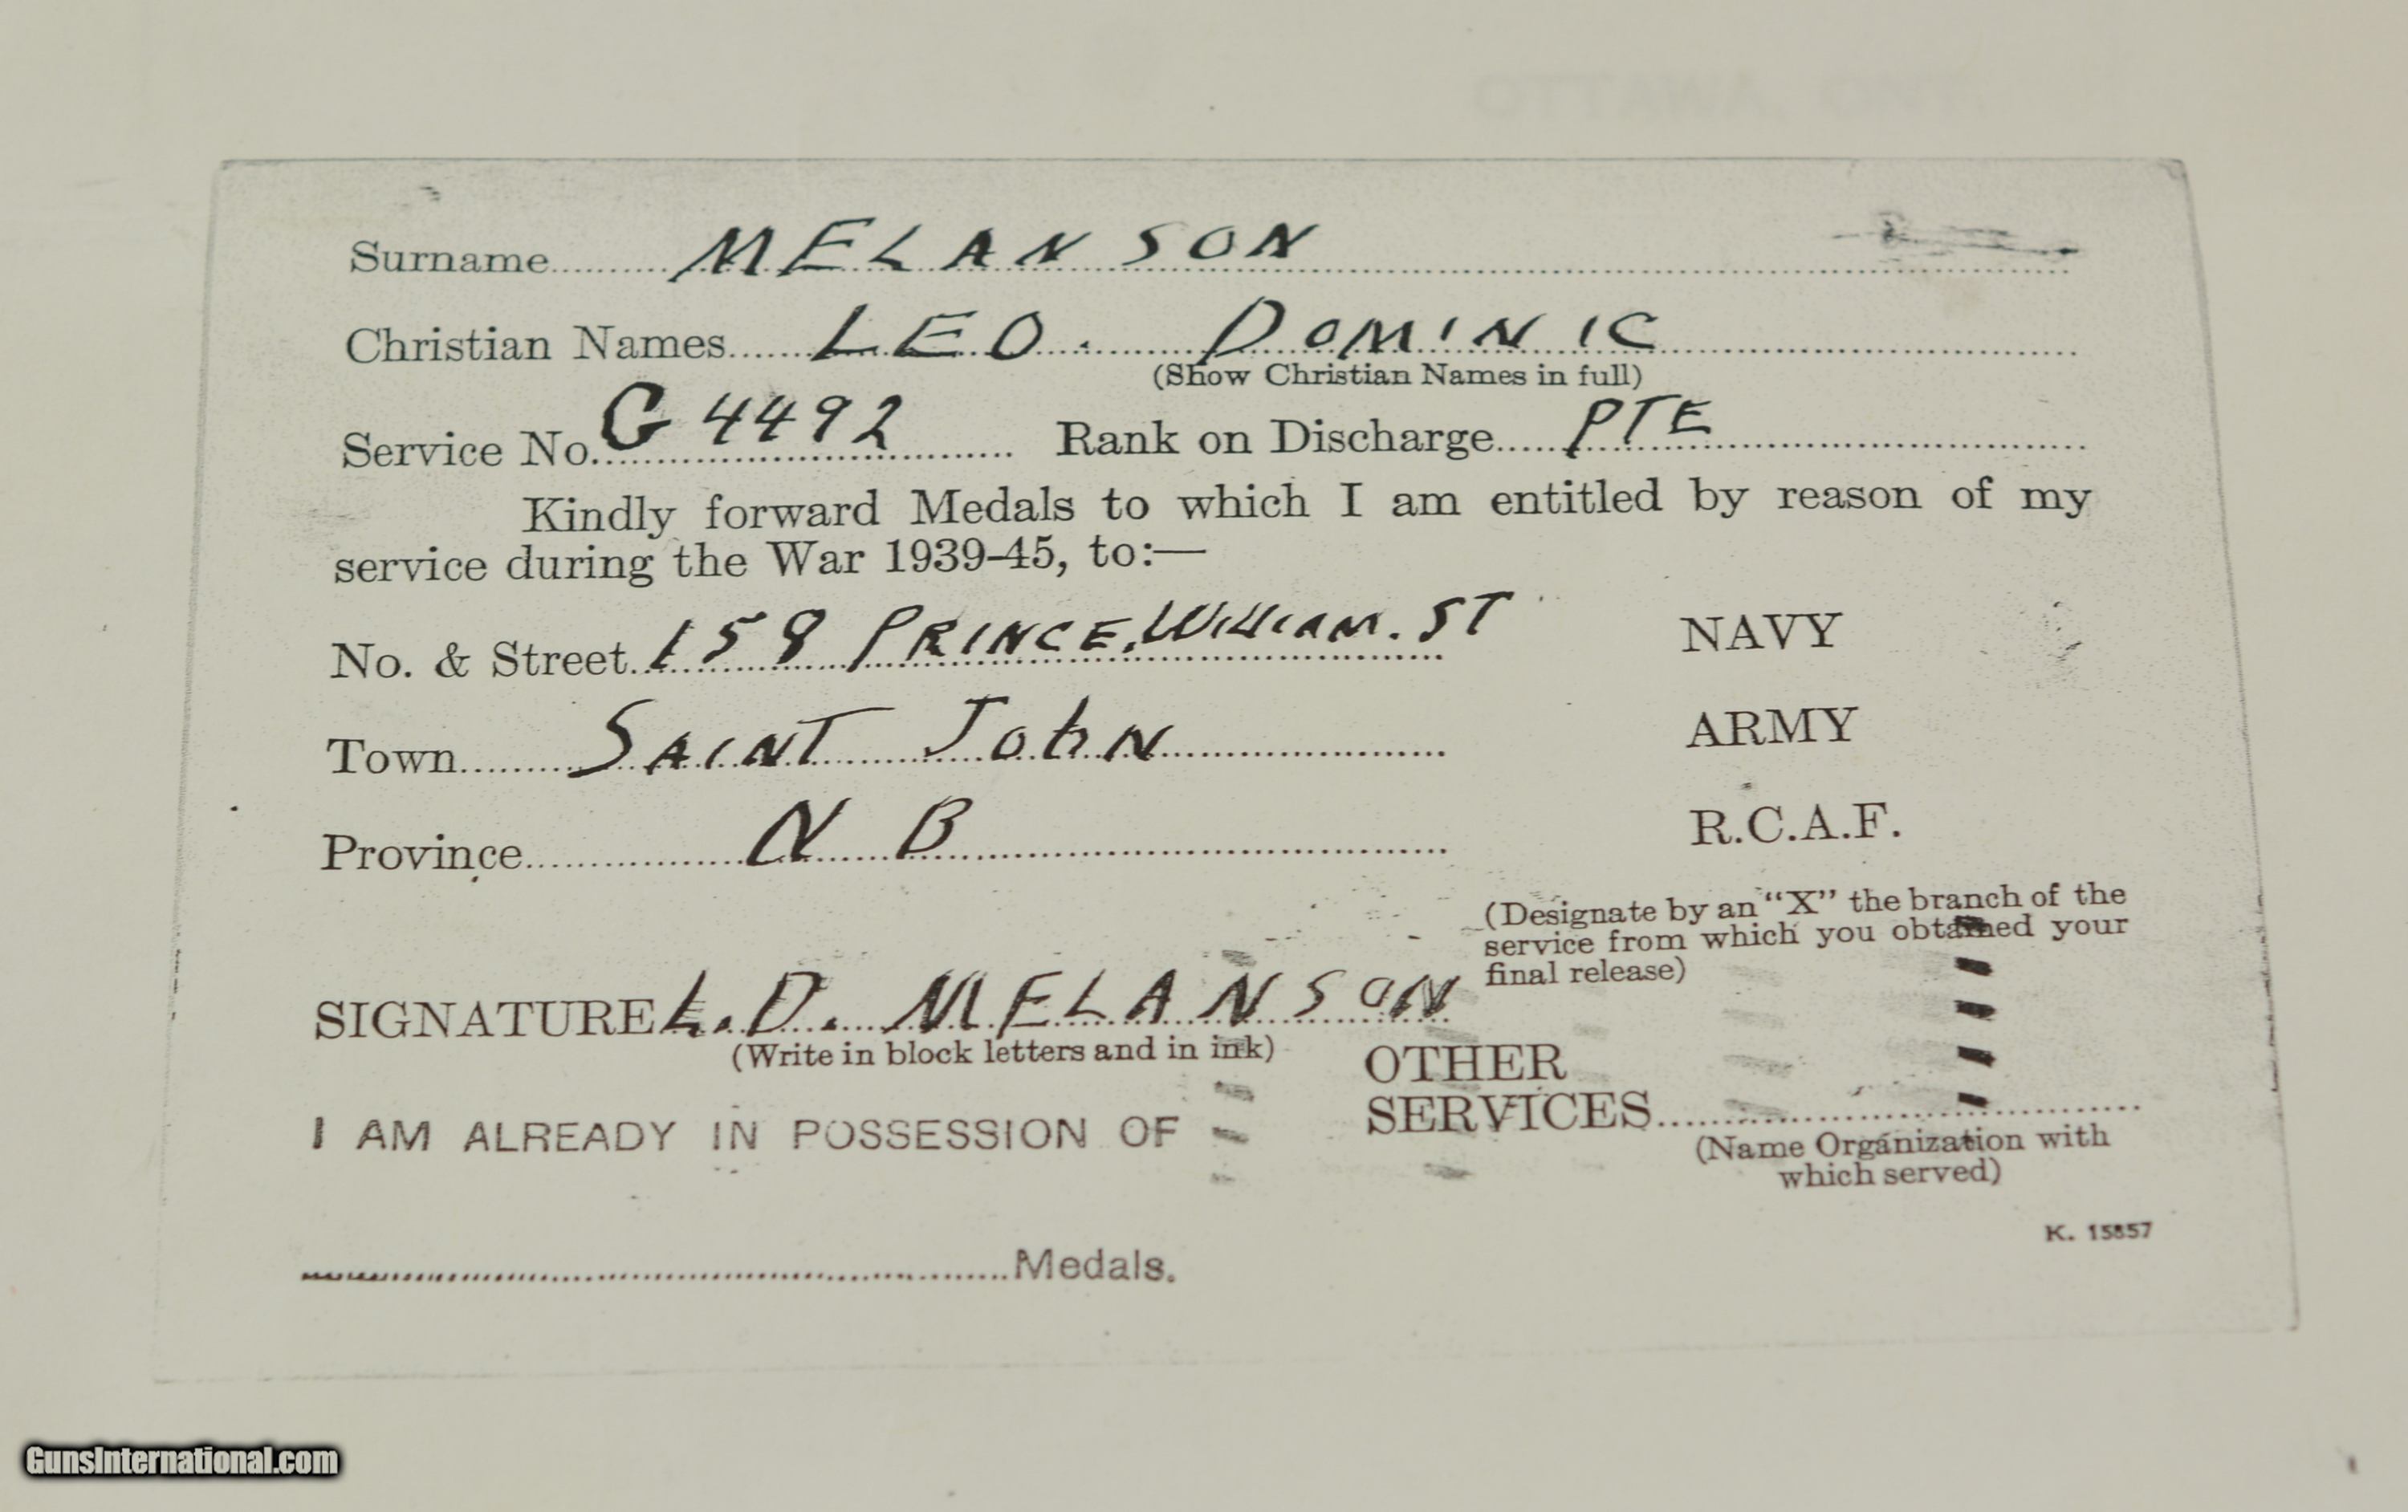 OTTAWA, ONT.
Surname..........MELANSON
Christian Names......LEO. DOMINIC
(Show Christian Names in full)
Service No. G 4492 Rank on Discharge.....PTE
Kindly forward Medals to which I am entitled by reason of my
service during the War 1939-45, to:—
No. & Street..158 PRINCE.WILLIAM. ST NAVY
Town......SAINT JOhN ARMY
Province..........N B R.C.A.F.
(Designate by an "X" the branch of the
service from which you obtained your
final release)
SIGNATURE L.D. MELANSON
(Write in block letters and in ink)
OTHER
I AM ALREADY IN POSSESSION OF SERVICES..........
(Name Organization with
which served)
K. 15857
..........Medals.
GunsInternational.com